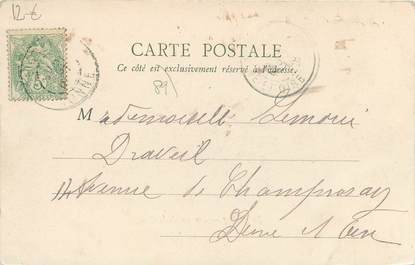 12 €
CARTE POSTALE
Ce côté est exclusivement réservé à l'adresse.
89
Mademoiselle Lemoin
Draveil
14 Avenue de Champrosay
Seine et Oise